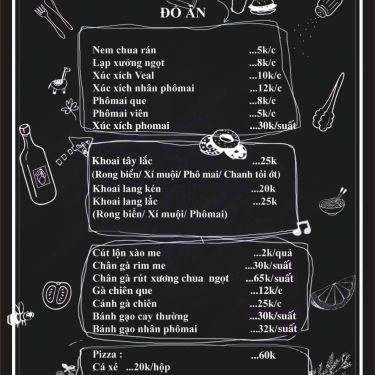 ĐỒ ĂN
Nem chua rán ...5k/c
Lạp xưởng ngọt ...8k/c
Xúc xích Veal ...10k/c
Xúc xích nhân phômai ...12k/c
Phômai que ...8k/c
Phômai viên ...5k/c
Xúc xích phomai ...30k/suất
Khoai tây lắc ...25k
(Rong biển/ Xí muội/ Phô mai/ Chanh tỏi ớt)
Khoai lang kén ...20k
Khoai lang lắc ...25k
(Rong biển/ Xí muội/ Phômai)
Cút lộn xào me ...2k/quả
Chân gà rim me ...30k/suất
Chân gà rút xương chua ngọt ...65k/suất
Gà chiên que ...12k/c
Cánh gà chiên ...25k/c
Bánh gạo cay thường ...30k/suất
Bánh gạo nhân phômai ...32k/suất
Pizza : ...60k
Cá xé ...20k/hộp